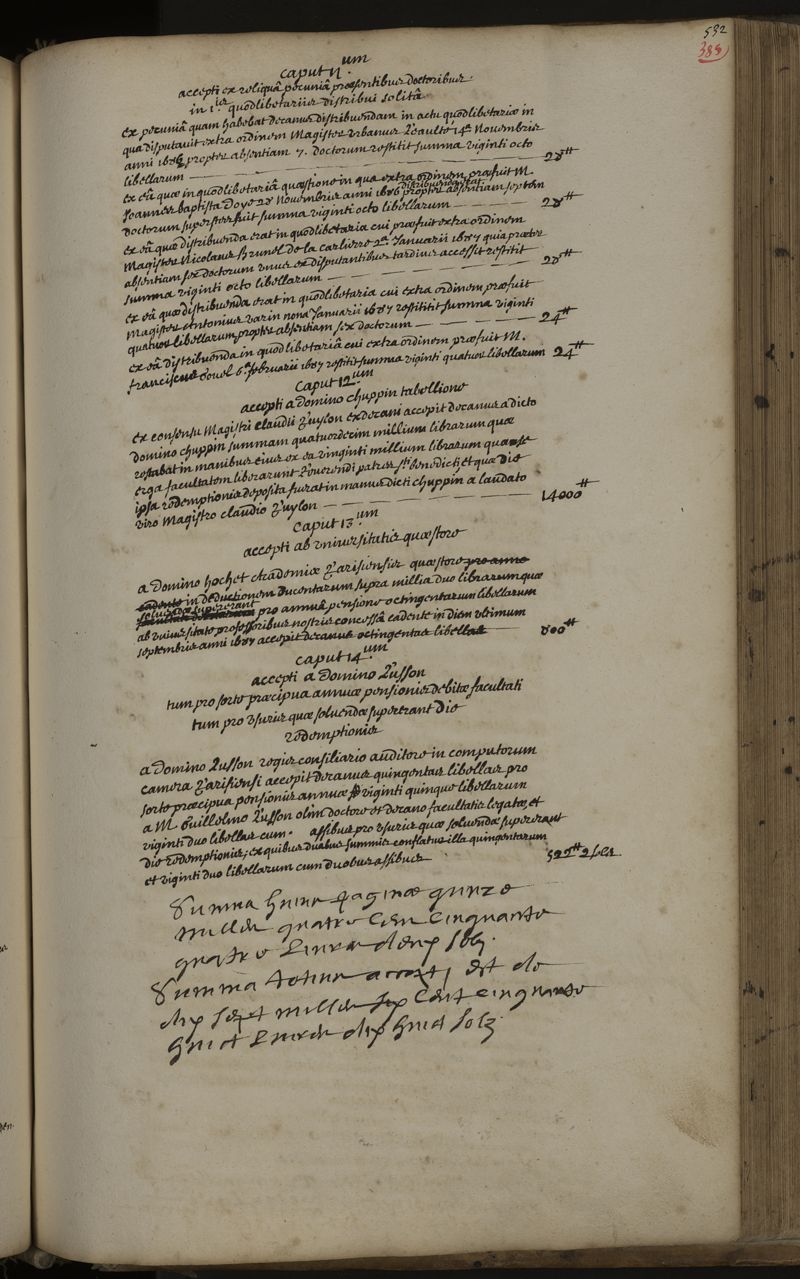 532
388
Caput 11.um
accepti ex reliquâ pecuniâ praesentibus doctoribus
in 1.is quodlibetariis distribui solitâ
Ex pecuniâ quam habebat decanus distribuendam in actu quodlibetariae in
qua disputavit extra ordinem Magister Urbanus Leaulté 14a Novembris
anni 1686 propter absentiam 7. doctorum restitit summa viginti octo
libellarum — 28tt
Ex eâ quae in quodlibetariâ quaestione in qua extra ordinem praefuit M.
Joannes baptista Doye 28 Novembris anni 1686 distribuenda erat propter absentiam septem
doctorum superstes fuit summa viginti octo libellarum — 28tt
Ex eâ quae distribuenda erat in quodlibetaria cui praefuit extra ordinem
Magister Nicolaus brunel de la carliere 2a Januarii 1687 quia praeter
absentiam sex doctorum unus ex disputantibus tardius accessit restitit
summa viginti octo libellarum — 28tt
Ex eâ quae distribuenda erat in quodlibetaria cui extra ordinem praefuit
Magister Antonius varin nona Januarii 1687 restitit summa viginti
quatuor libellarum propter absentiam sex doctorum — 24tt
Ex eâ distribuenda in quodlibetariâ cui extra ordinem praefuit M.
franciscus 6a februarii 1687 restitit summa viginti quatuor libellarum 24tt
Caput 12.um
accepti a Domino chuppin tabellione
Ex consensu Magistri claudii Quylon exdecani accepit decanus a dicto
domino chuppin summam quatuordecim millium librarum quae
restabat in manibus eius ex ea viginti millium librarum quam se
erga facultatem liberarunt Reverendi patres sti benedicti et quae die
ipsa redemptionis deposita fuerat in manus dicti chuppin a laudato
viro Magistro claudio Quylon — 14000tt
Caput 13.um
accepti ab universitatis quaestore
a Domino hochet Academiae Parisiensis quaestore pro anno
cadente in deductionem ducentarum supra millia duo librarum quae
solvendae supererant pro annuâ pensione octingentarum libellarum
ab universitate professoribus nostris concessâ cadente in diem ultimum
septembris anni 1687 accepit decanus octingentas libellas — 800tt
Caput 14.um
accepti a Domino Lusson
tum pro sorte praecipua annuae pensionis debitae facultati
tum pro usuris quae solvendae supererant die
redemptionis
a Domino Lusson regis consiliario auditore in computorum
camera Parisiensi accepit decanus quingentas libellas pro
sorte praecipua pensionis annuae viginti quinque libellarum
a M. Guillelmo Lusson olim doctore et decano facultatis legatae, et
viginti duo libellas cum 2. assibus pro usuris quae solvendae supererant
die redemptionis; ex quibus duabus summis conflatur illa quingentarum
et viginti duo libellarum cum duobus assibus 522tt 2s
Summa huius paginae quinze
mille quatre Cens Cinquante
quatre Livres deux solz.
Summa totius accepti est de
dix sept mille six Cent Cinquante
huict Livres dix huict solz.